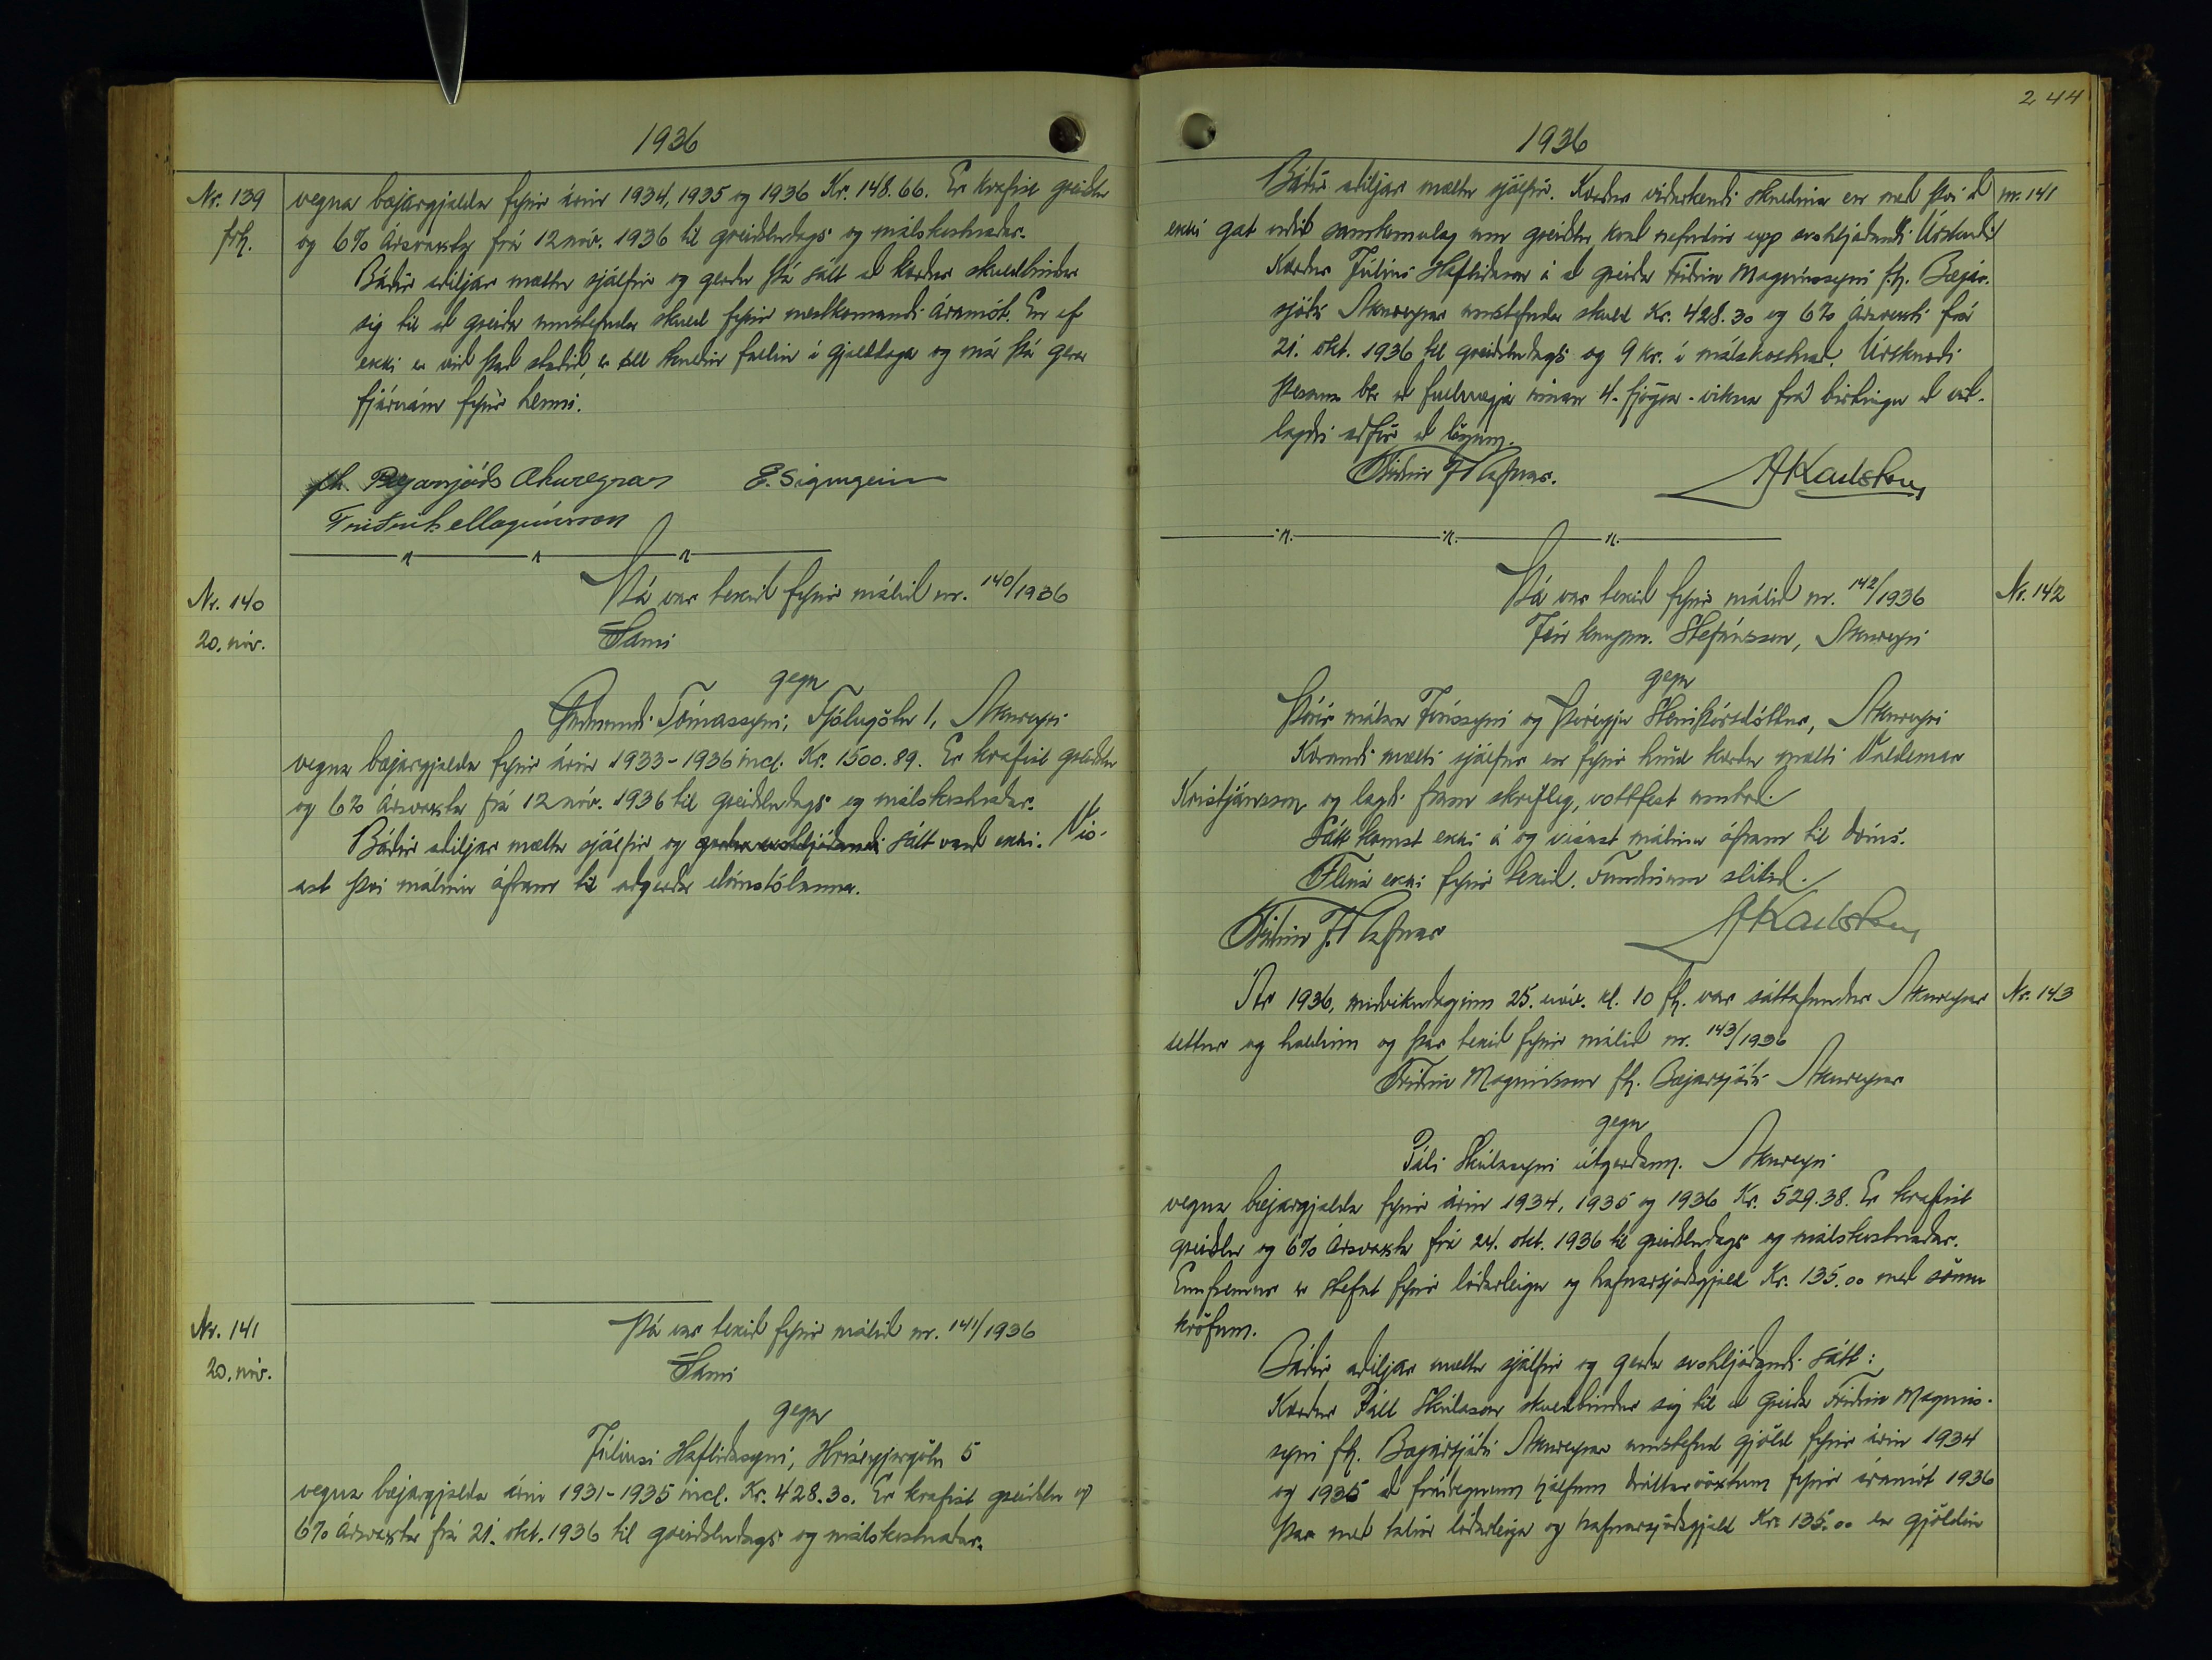 1936
Nr. 139
frh.
vegna bæjargjalda fyrir árin 1934, 1935 og 1936 Kr. 148.66. Er krafist greiðslu
og 6% ársvaxta frá 12 nóv. 1936 til greiðsludags og málskostnaðar.
Báðir aðiljar mættu sjálfir og gerðu þá sátt að kærður skuldbindur
sig til að greiða umstefnda skuld fyrir næstkomandi áramót. En ef
ekki er við það staðið, er öll skuldin fallin í gjalddaga og má þá gera
fjárnám fyrir henni.
fh. Bæjarsjóðs Akureyrar E. Sigurgeirs
Friðrik Magnússon
Nr. 140
20. nóv.
Þá var tekið fyrir málið nr. 140/1936
Sami
gegn
Guðmundi Tómassyni, Fjólugötu 1, Akureyri
vegna bæjargjalda fyrir árin 1933-1936 incl. Kr. 1500.89. Er krafist greiðslu
og 6% ársvaxta frá 12 nóv. 1936 til greiðsludags og málskostnaðar.
Báðir aðiljar mættu sjálfir og gerðu svohljóðandi sátt varð ekki. Vís-
ast því málinu áfram til aðgerða dómstólanna.
Nr. 141
20. nóv.
Þá var tekið fyrir málið nr. 141/1936
Sami
gegn
Júlíusi Hafliðasyni, Hríseyjargötu 5
vegna bæjargjalda árin 1931-1935 incl. Kr. 428.30. Er krafist greiðslu og
6% ársvaxta frá 21. okt. 1936 til greiðsludags og málskostnaðar.
244
1936
Báðir aðiljar mættu sjálfir. Kærður viðurkendi skuldina en með því að
nr. 141
ekki gat orðið samkomulag um greiðslu, kvað nefndin upp svohljóðandi Úrskurð
Kærður Júlíus Hafliðason á að greiða Friðrik Magnússyni f.h. Bæjar-
sjóðs Akureyrar umstefnda skuld Kr. 428.30 og 6% ársvexti frá
21. okt. 1936 til greiðsludags og 9 kr. í málskostnað. Úrskurði
þessum ber að fullnægja innan 4-fjögra-vikna frá birtingu að við-
lagðri aðför að lögum.
Friðrik J. Rafnar.
Þá var tekið fyrir málið nr. 142/1936
Nr. 142
Jón kaupm. Stefánsson, Akureyri
gegn
Þóri málara Jónssyni og Þóreyju Steinþórsdóttur, Akureyri
Kærandi mætti sjálfur en fyrir hönd kærðu mætti Valdemar
Kristjánsson og lagði fram skriflegt, vottfest umboð.
Sátt komst ekki á og vísast málinu áfram til dóms.
Fleira ekki fyrir tekið. Fundinum slitið.
Friðrik J. Rafnar
Ár 1936, miðvikudaginn 25. nóv. kl. 10 fh. var sáttafundur Akureyrar
Nr. 143
settur og haldinn og þar tekið fyrir málið nr. 143/1936
Friðrik Magnússon fh. Bæjarsjóðs Akureyrar
gegn
Páli Skúlasyni útgerðarm. Akureyri
vegna bæjargjalda fyrir árin 1934, 1935 og 1936 Kr. 529.38. Er krafist
greiðslu og 6% ársvaxta frá 24. okt. 1936 til greiðsludags og málskostnaðar.
Ennfremur er stefnt fyrir lóðarleigu og hafnarsjóðsgjald Kr. 135.00 með sömu
kröfum.
Báðir aðiljar mættu sjálfir og gerðu svohljóðandi sátt:
Kærður Páll Skúlason skuldbindur sig til að greiða Friðrik Magnús-
syni fh. Bæjarsjóðs Akureyrar umstefnd gjöld fyrir árin 1934
og 1935 að frádregnum hálfum dráttarvöxtum fyrir áramót 1936
þar með talin lóðarleiga og hafnarsjóðsgjald Kr. 135.00 en gjöldin